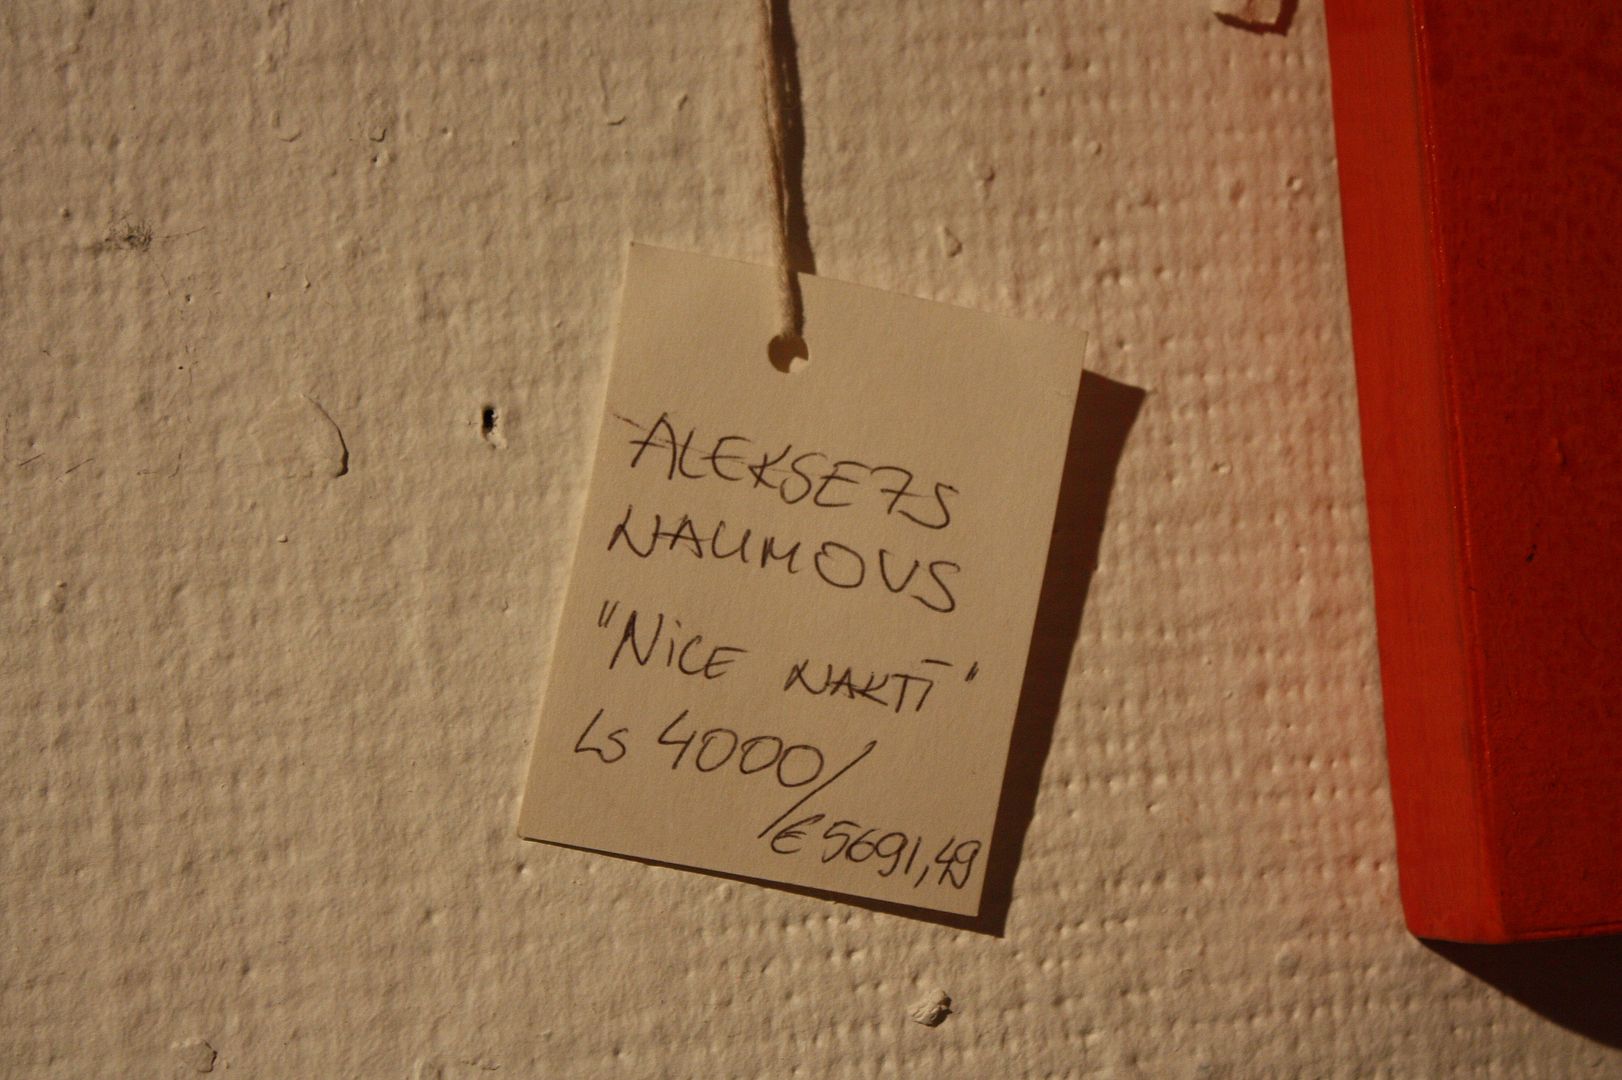 ALEKSEJS
NAUMOVS
"NICE NAKTĪ"
Ls 4000/
€ 5691,49